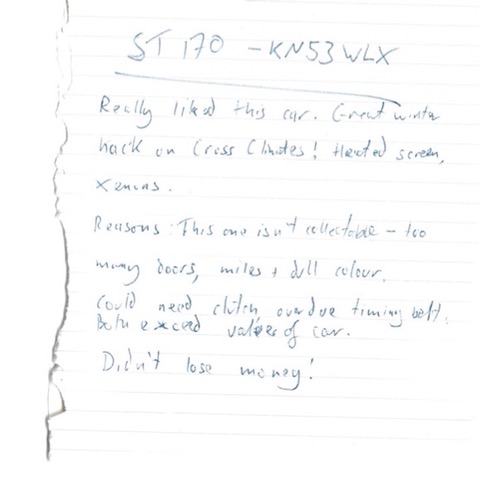 ST170 - KN53WLX
Really liked this car. Great winter
hack on Cross Climates! Heated screen,
xenons.
Reasons: This one isn't collectable - too
many doors, miles + dull colour.
Could need clutch, overdue timing belt.
Both exceed value of car.
Didn't lose money!